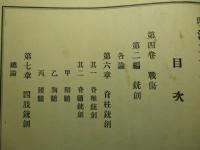 目次
第四卷 戰傷
第二編 銃創
各論
第六章 脊柱銃創
其一 脊椎銃創
其二 脊髓銃創
甲 頸髓
乙 胸髓
丙 腰髓
第七章 四肢銃創
總論